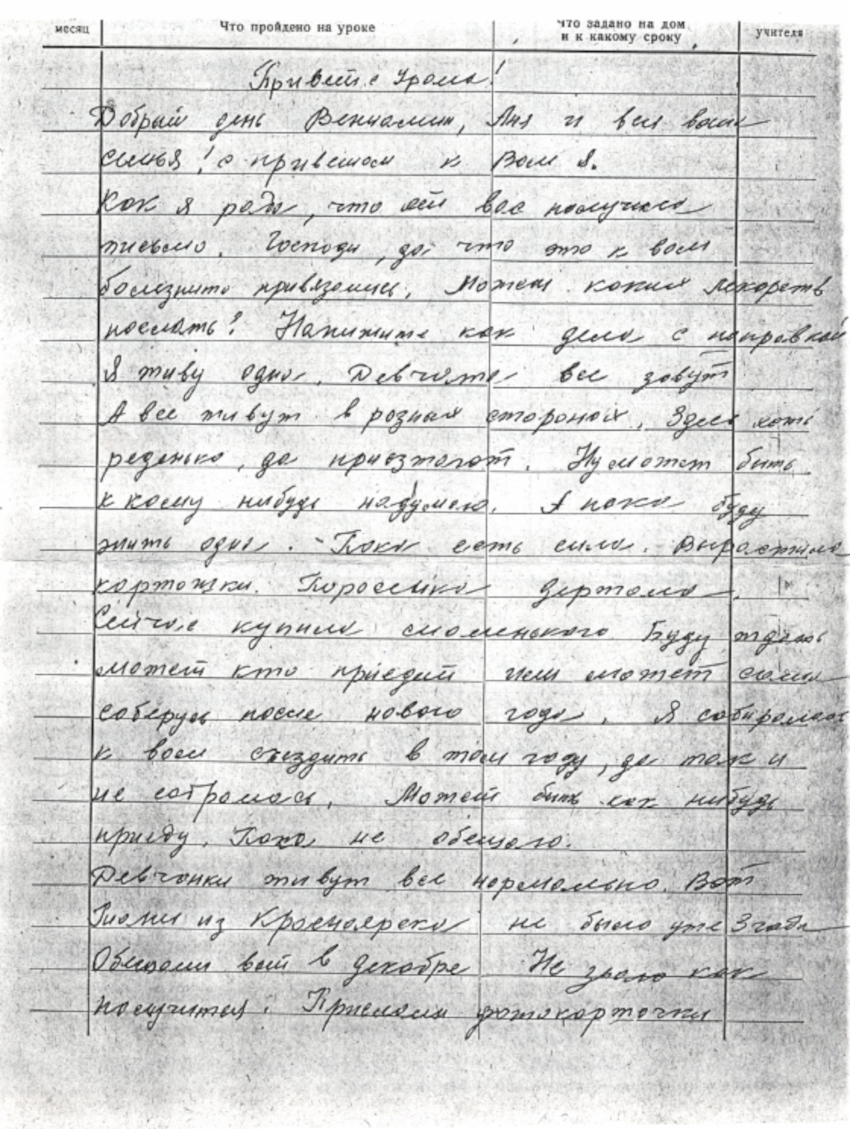 месяц Что пройдено на уроке что задано на дом и к какому сроку учителя
Привет с Урала!
Добрый день Вениамин, Аня и вся ваша
семья! с приветом к Вам я.
Как я рада, что от вас получила
письмо. Господи, да что это к вам
болезни то привязались. Может каких лекарств
послать? Напишите как дела с поправкой
Я живу одна. Девчата все зовут
А все живут в разных сторонах. Здесь хоть
реденько, да приезжают. Ну может быть
к кому нибудь надумаю. А пока буду
жить одна. Пока есть сила. Вырастила
картошки. Поросенка держала.
Сейчас купила смоленького Буду ждать
может кто приедит или может сама
соберусь после нового года. Я собиралась
к вам съездить в том году, да так и
не собралась. Может быть как нибудь
приеду. Пока не обещаю.
Девчонки живут все нормально. Вот
из Красноярска не было уже 3 года
Обещали вот в декабре Не знаю как
получится. Прислали фотокарточки